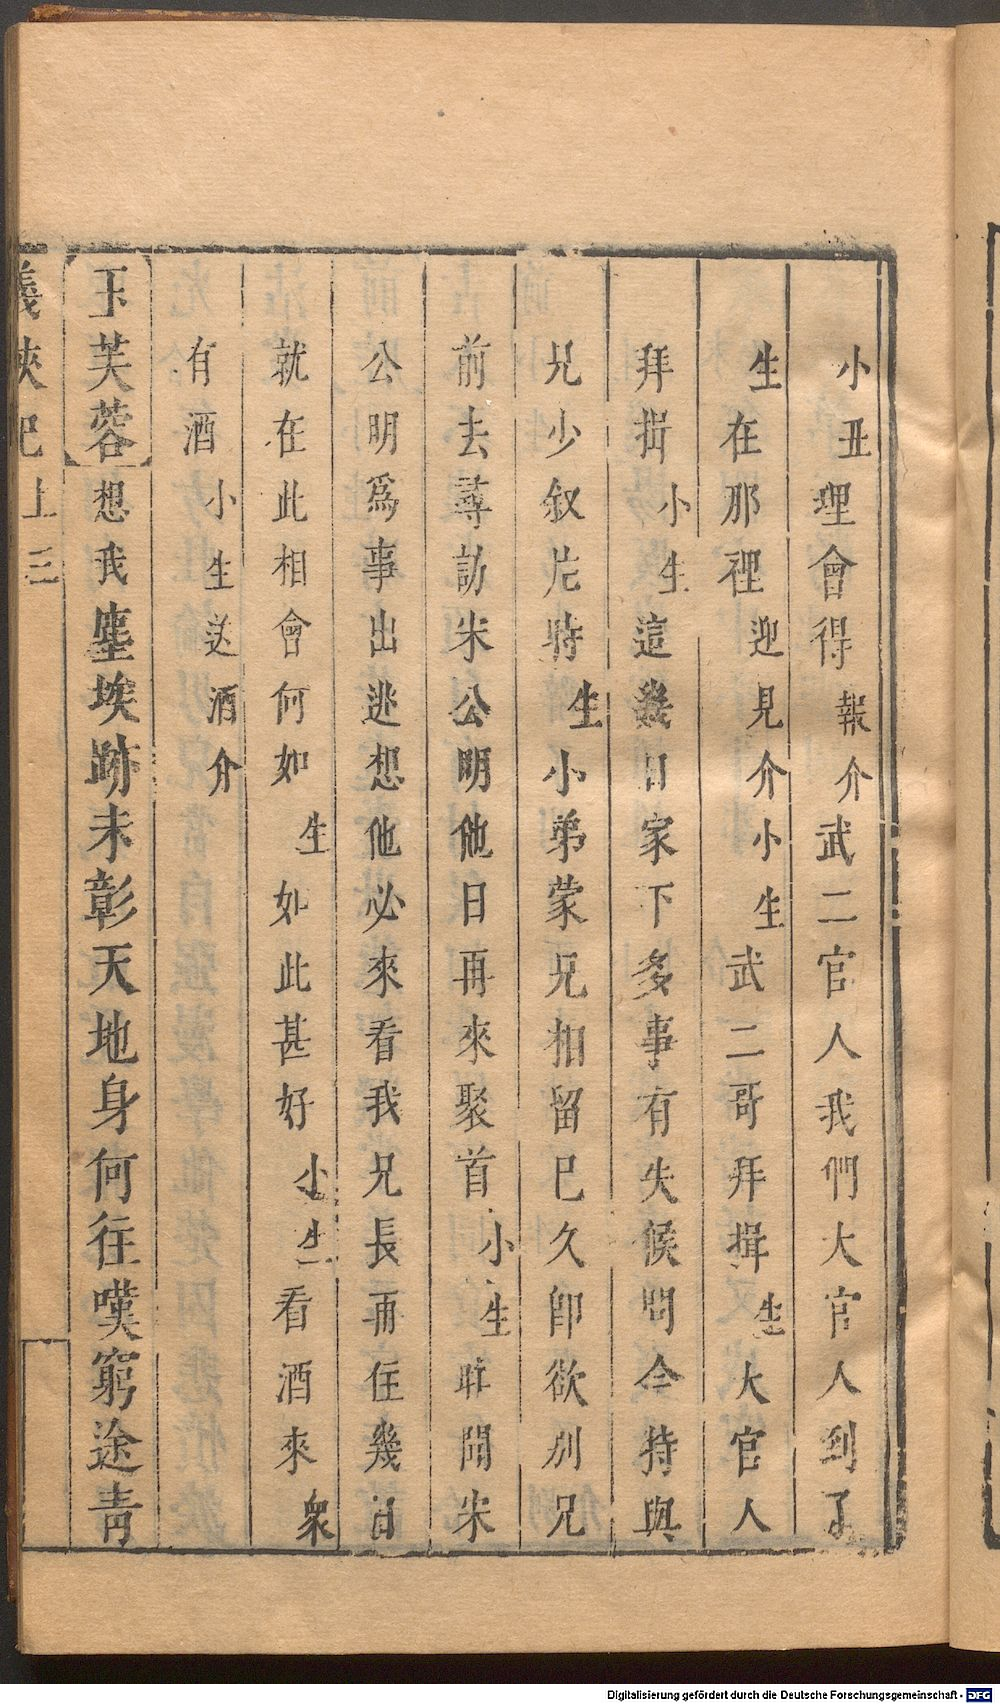 小丑理會得報介武二官人我們大官人到了
生在那裡迎見介小生武二哥拜揖生大官人
拜揖小生這幾日家下多事有失候問今特與
兄少叙片時生小弟蒙兄相留已久卽欲別兄
前去尋訪宋公明他日再來聚首小生昨聞宋
公明爲事出逃想他必來看我兄長再住幾日
就在此相會何如生如此甚好小生看酒來衆
有酒小生送酒介
玉芙蓉想我塵埃跡未彰天地身何往嘆窮途靑
義俠記上三
Digitalisierung gefördert durch die Deutsche Forschungsgemeinschaft - DFG